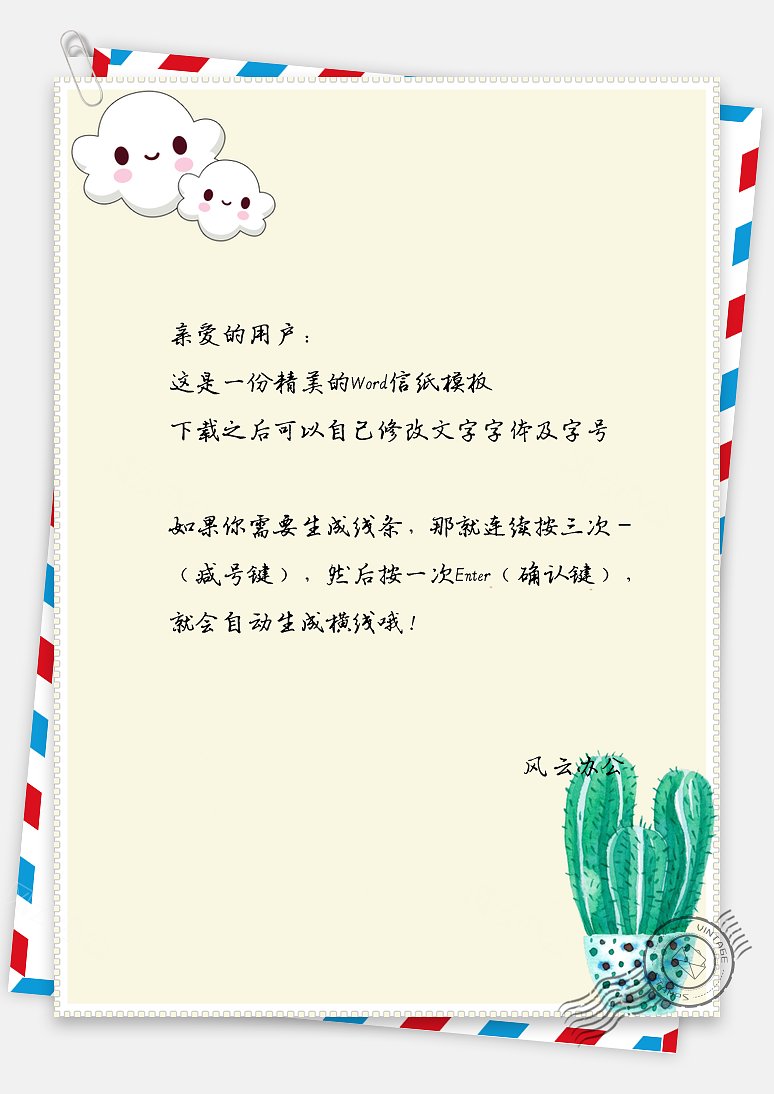 亲爱的用户：
这是一份精美的Word信纸模板
下载之后可以自己修改文字字体及字号
如果你需要生成线条，那就连续按三次－
（减号键），然后按一次Enter（确认键），
就会自动生成横线哦！
风云办公
VINTAGE